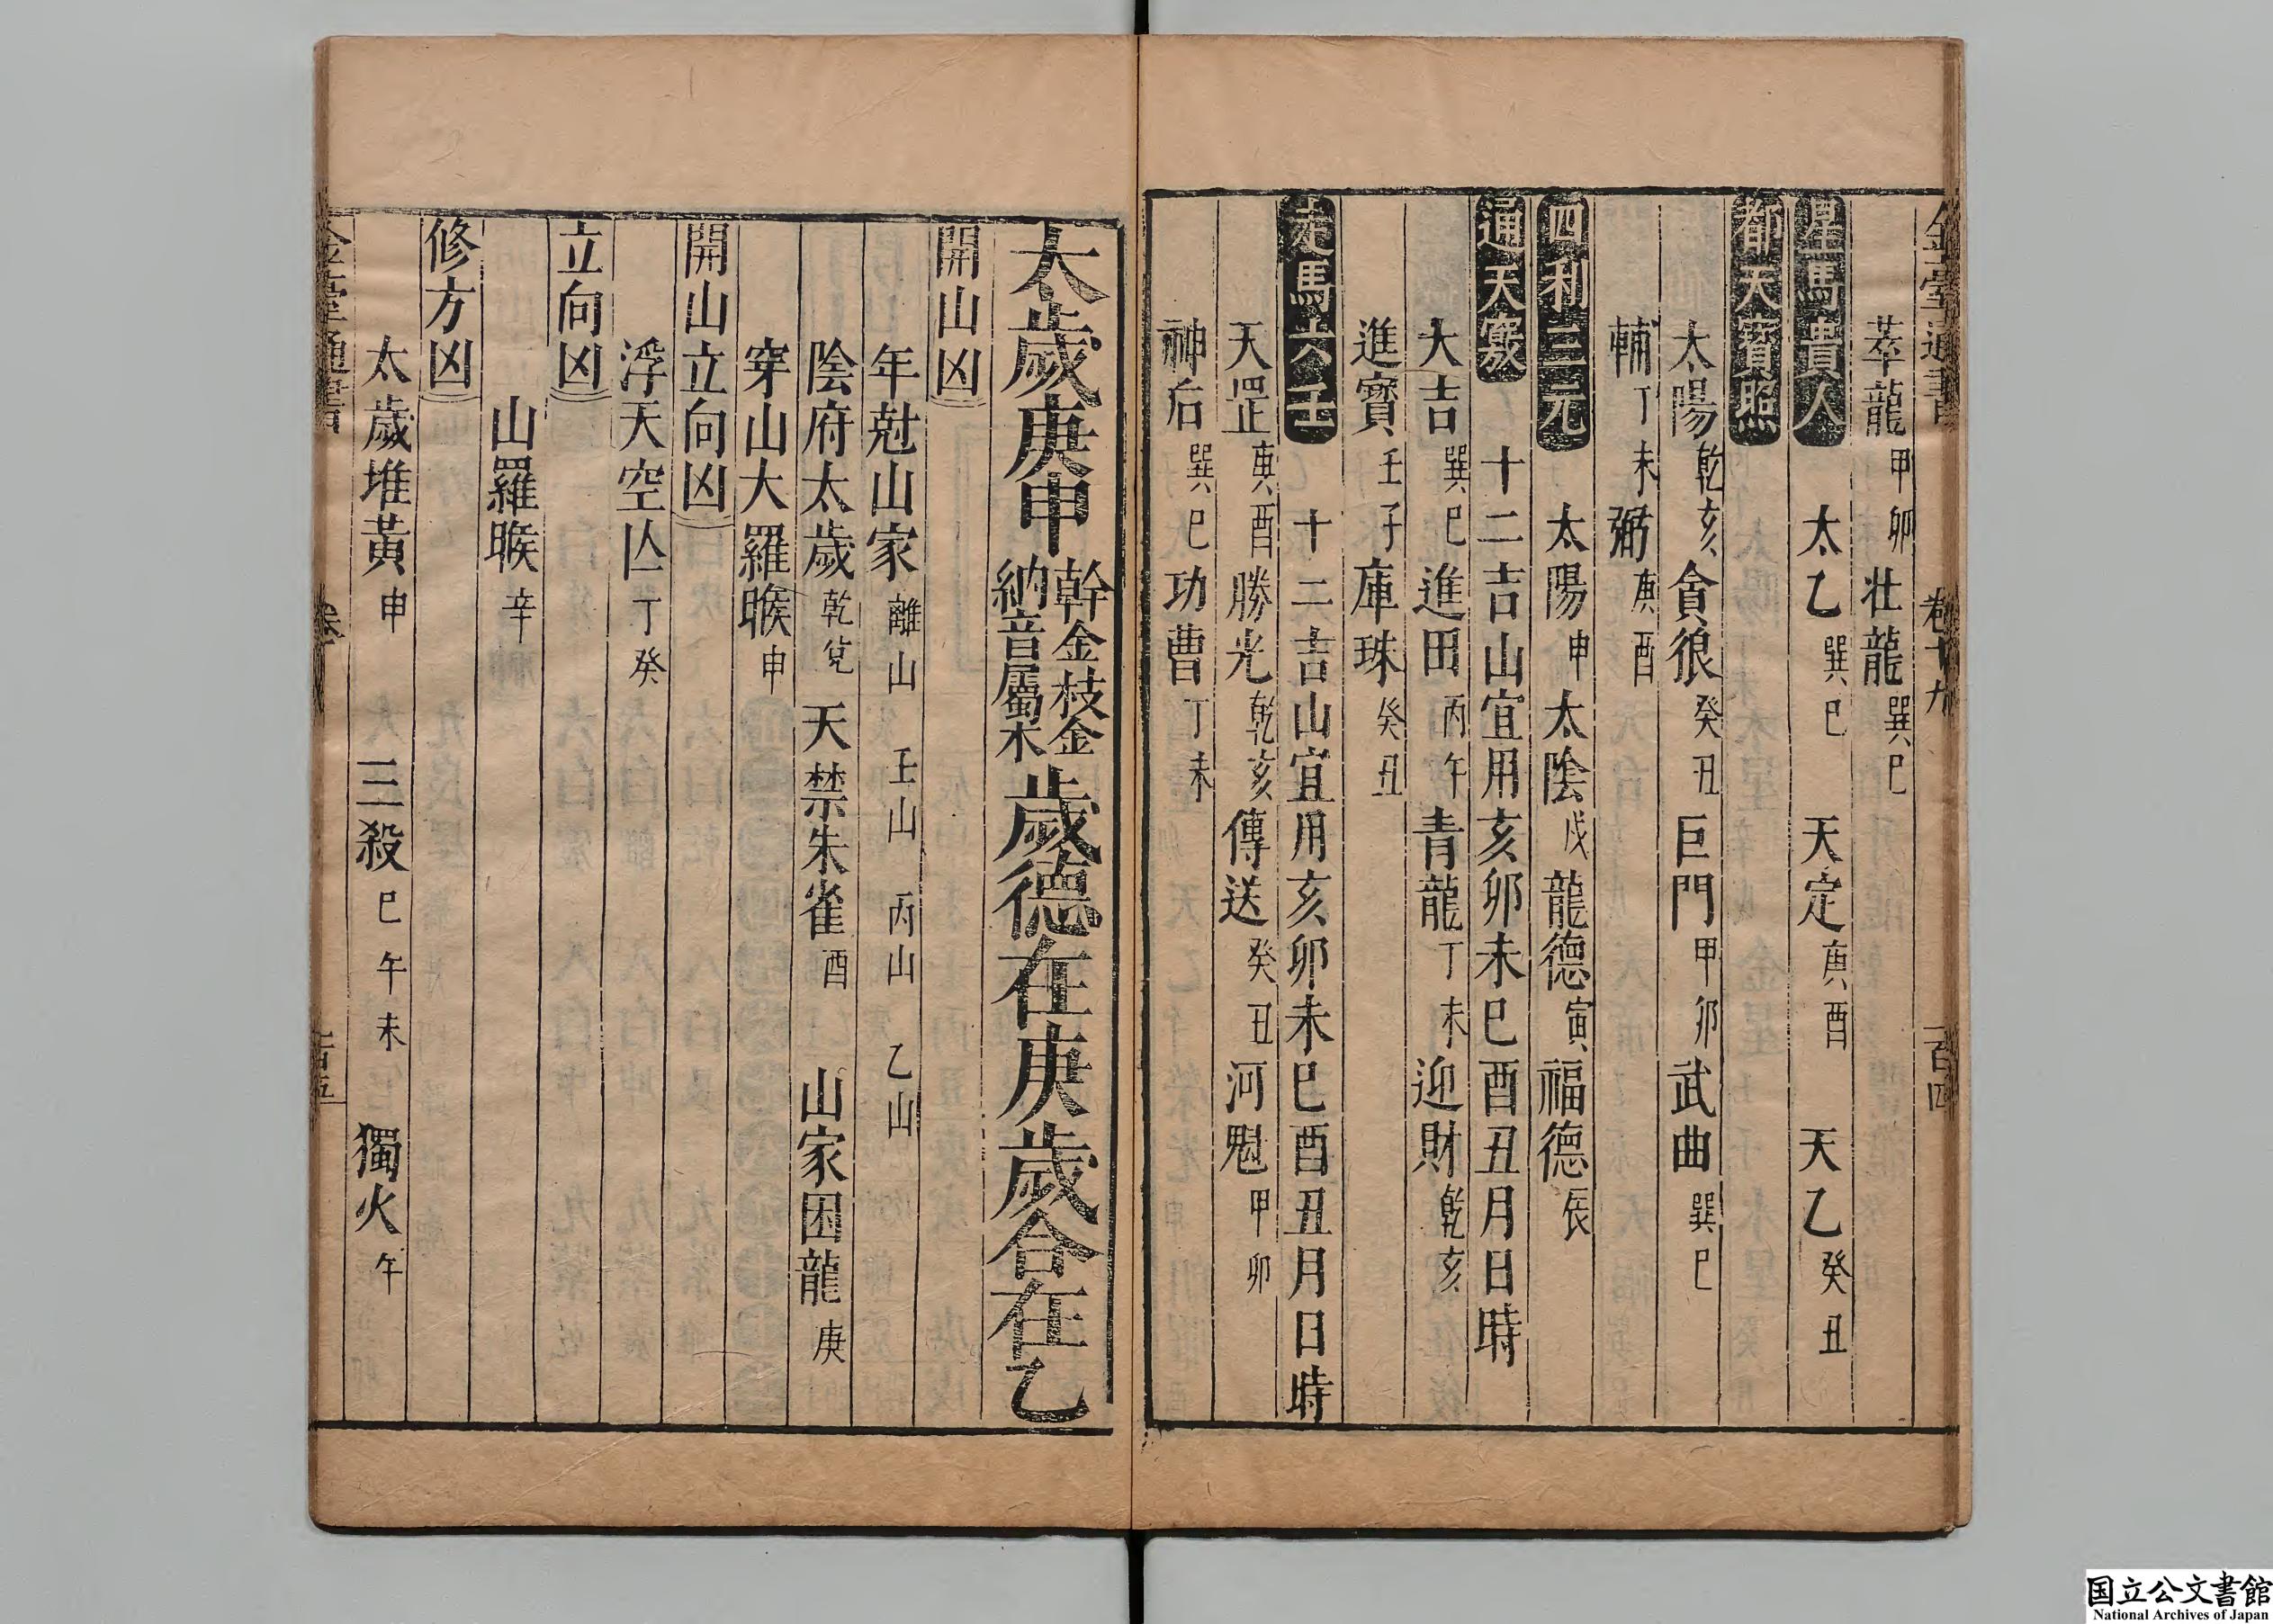 萃龍甲卯壯龍巽巳
星馬貴人 太乙巽巳 天定庚酉 天乙癸丑
都天寶照
太陽乾亥貪狼癸丑巨門甲卯武曲巽巳
輔丁未弼庚酉
四利三元 太陽申太陰戌龍德寅福德辰
通天竅 十二吉山宜用亥卯未巳酉丑月日時
大吉巽巳進田丙午青龍丁未迎財乾亥
進寳壬子庫珠癸丑
走馬六壬 十二吉山宜用亥卯未巳酉丑月日時
天罡庚酉勝光乾亥傳送癸丑河魁甲卯
神后巽巳功曹丁未
太歲庚申幹金枝金納音屬木歲德在庚歲合在乙
開山凶
年尅山家離山 壬山 丙山 乙山
陰府太歲乾兌 天禁朱雀酉 山家困龍庚
穿山大羅睺申
開山立向凶
浮天空亾丁癸
立向凶
山羅睺辛
修方凶
太歲堆黃申 三殺巳午未 獨火午
卷十九
百四
国立公文書館
National Archives of Japan